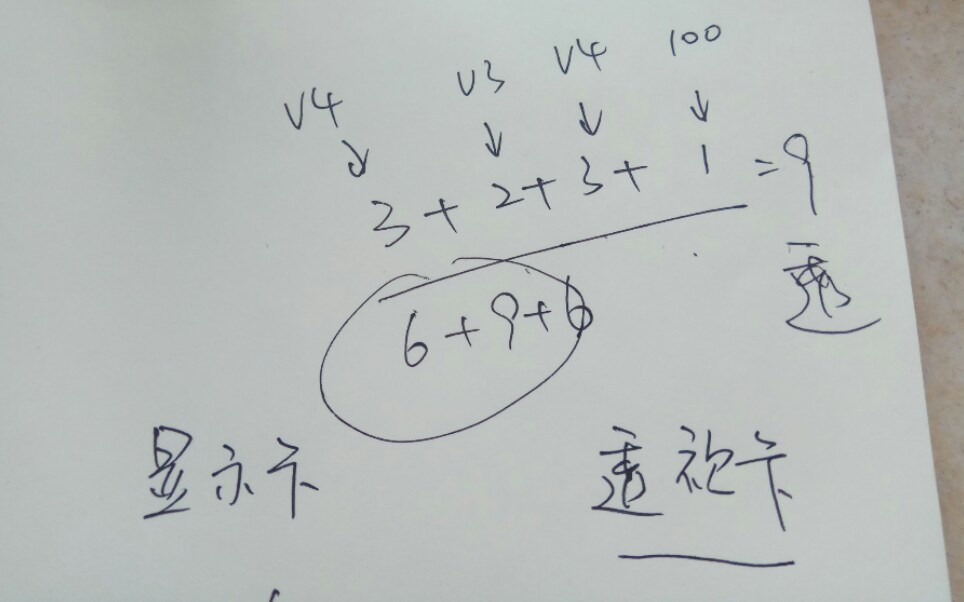 V4 V3 V4 100
3 + 2 + 3 + 1 = 9
透
6 + 9 + 6
显示卡 透视卡